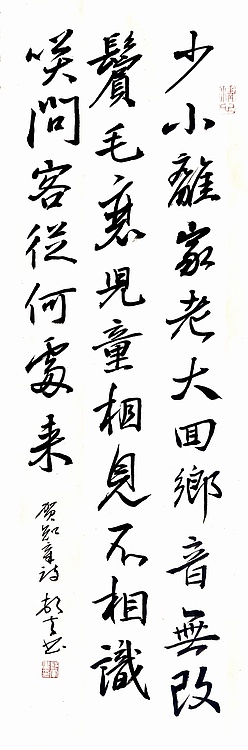 少小離家老大回鄉音無改
鬢毛衰兒童相見不相識
咲問客從何處来
賀知章詩